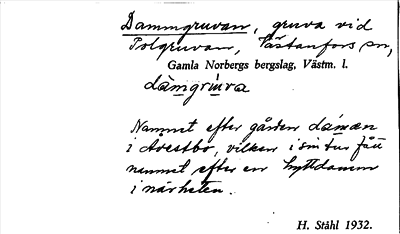 Dammgruvan, gruva vid
Polgruvan, Västanfors sn,
Gamla Norbergs bergslag, Västm. l.
dàmgrùva
Namnet efter gården dámən
i Avestbo, vilken i sin tur fått
namnet efter en hyttdamm
i närheten.
H. Ståhl 1932.